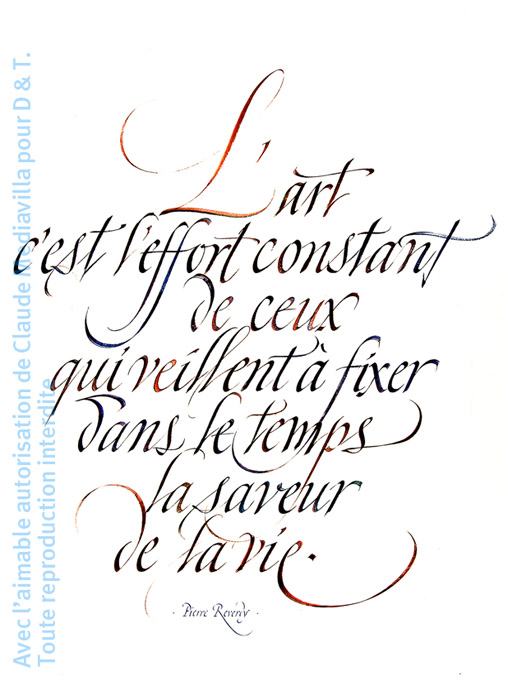 L'art
c'est l'effort constant
de ceux
qui veillent à fixer
dans le temps
la saveur
de la vie.
· Pierre Reverdy ·
Avec l'aimable autorisation de Claude Mediavilla pour D & T.
Toute reproduction interdite